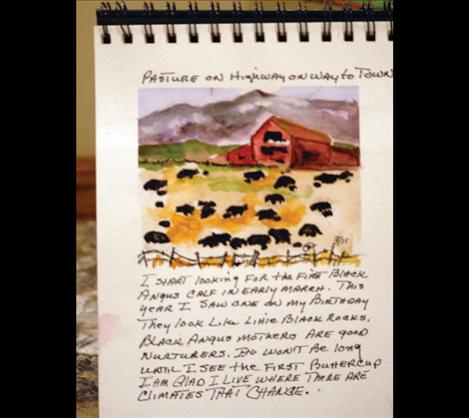 Pasture on Highway on Way to Town
3/11
I start looking for the first Black
Angus calf in early March. This
year I saw one on my Birthday
They look like little Black Rocks.
Black Angus mothers are good
nurturers. It won't be long
until I see the first Buttercup
I am glad I live where there are
climates that change.